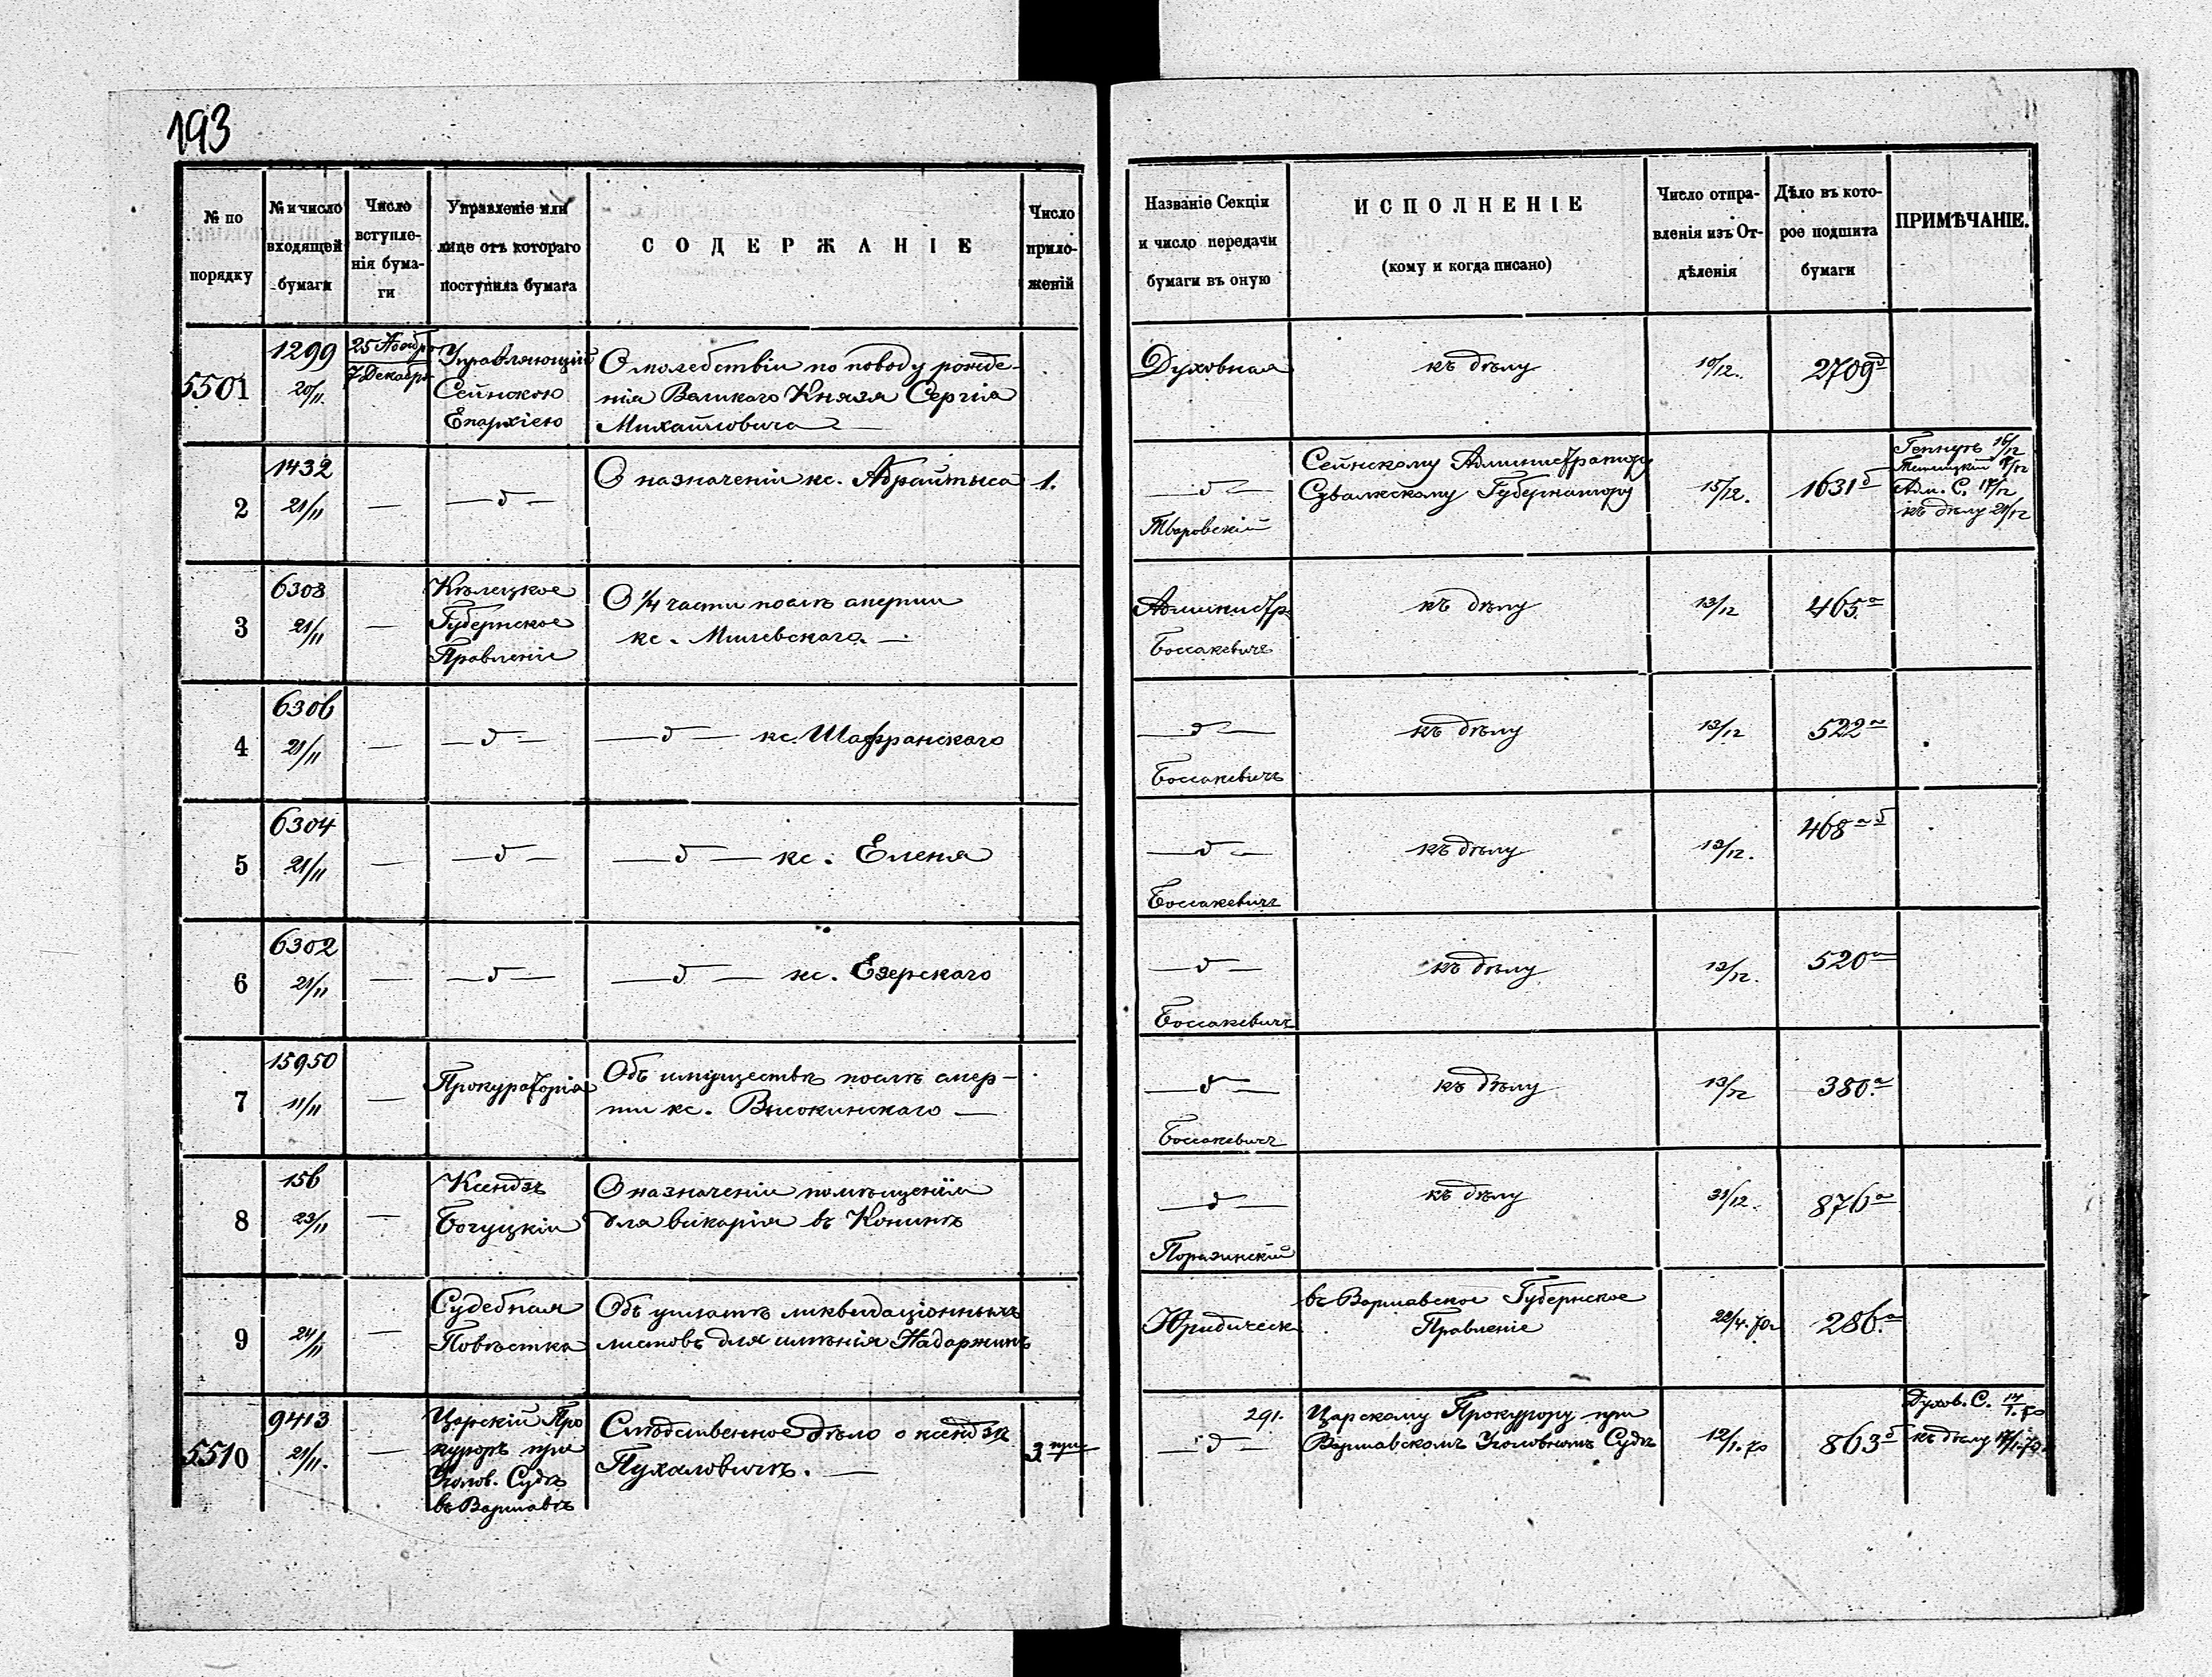 193
№ по порядку
№ и число входящей бумаги
Число вступле-нія бума-ги
Управленіе или лице отъ котораго поступила бумага
СОДЕРЖАНІЕ
Число прило-женій
Названіе Секціи и число передачи бумаги въ оную
ИСПОЛНЕНІЕ
(кому и когда писано)
Число отпра-вленія изъ От-дѣленія
Дѣло въ кото-рое подшита бумаги
ПРИМѢЧАНІЕ.
5501
1299
20/11.
25 Ноябр
7 Декабр
Управляющій
Сейнскою
Епархіею
О молебствіи по поводу рожде-
нія Великаго Князя Сергія
Михайловича
Духовная
къ дѣлу
10/12.
2709 д
2
1432
21/11
—
— д —
О назначеніи кс. Абрайтыса
1.
— д —
Тваровскій
Сейнскому Администратору
Сувалкскому Губернатору
15/12.
1631 б
16/12
Адм. С. 18/12
къ дѣлу 21/12
3
6308
21/11
—
Кѣлецкое
Губернское
Правленіе
О 1/4 части послѣ смерти
кс. Милевскаго. —
Администр.
Боссакевичъ
къ дѣлу
13/12
465 а
4
6306
21/11
—
— д —
— д — кс. Шафранскаго
— д —
Боссакевичъ
къ дѣлу
13/12
522 а
5
6304
21/11
—
— д —
— д — кс. Еленя
— д —
Боссакевичъ
къ дѣлу
13/12.
468 а б
6
6302
21/11
—
— д —
— д — кс. Езерскаго
— д —
Боссакевичъ
къ дѣлу
13/12.
520 а
7
15950
11/11
—
Прокураторія
Объ имуществѣ послѣ смер-
ти кс. Высокинскаго —
— д —
Боссакевичъ
къ дѣлу
13/12
380. а
8
156
23/11
—
Ксендзъ
Богуцкій
О назначеніи помѣщенія
для викарія въ Конинѣ
— д —
Поразинскій
къ дѣлу
31/12.
876 а
9
24/11
—
Судебная
Повѣстка
Объ уплатѣ ликвидаціонныхъ
листовъ для имѣнія Надаржинъ
Юридическ
въ Варшавское Губернское
Правленіе
22/4. 70
286. а
5510
9413
21/11.
—
Царскій Про
куроръ при
Уголов. Судѣ
въ Варшавѣ
Слѣдственное дѣло о ксендзѣ
Пухаловичѣ. —
3 при
291.
— д —
Царскому Прокурору при
Варшавскомъ Уголовномъ Судѣ
12/1. 70
863 б
Духов. С. 14/1. 70
къ дѣлу 17/1. 70.